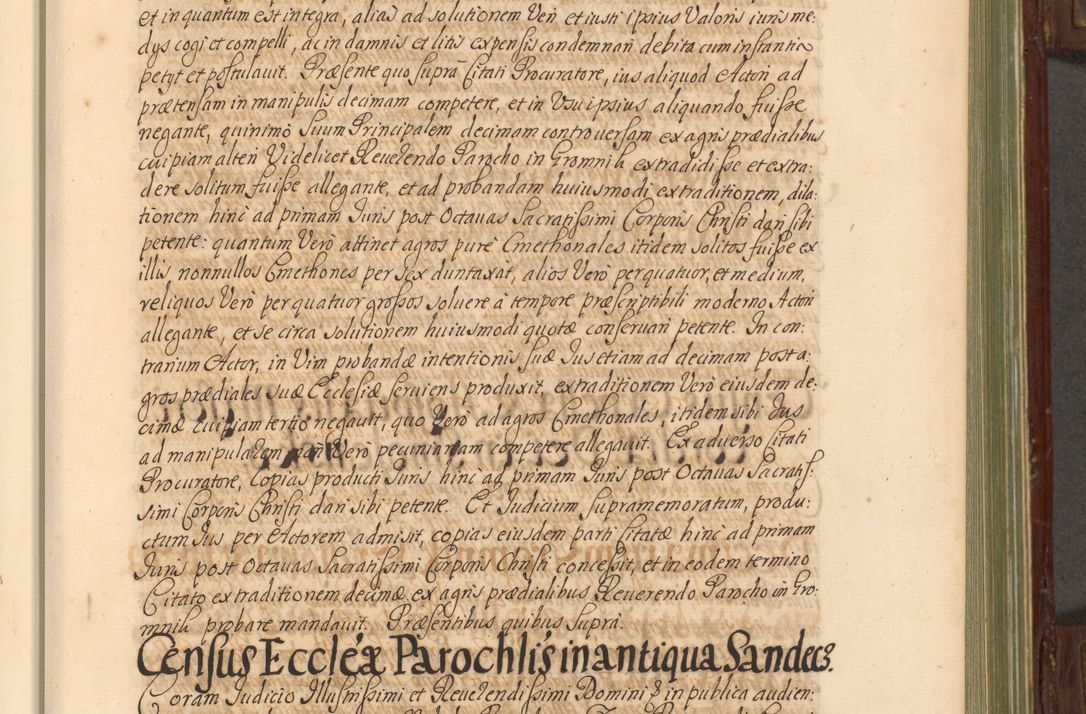 et in quantum est integra, alias ad solutionem Veri et iusti ipsius Valoris iuris me:
dys cogi et compelli, ac in damnis et litis expensis condemnari debita cum instantia
petyt et postulauit. Præsente quo supra Citati Procuratore, ius aliquod Actori ad
prætensam in manipulis decimam competere, et in Vsu ipsius aliquando fuisse
negante, quinimo suum Principalem decimam controuersam ex agris prædialibus
cuipiam alteri Videlicet Reuerendo Parocho in Gromnik extradidisse et extra:
dere solitum fuisse allegante, et ad probandam huiusmodi extraditionem, dila:
tionem hinc ad primam Iuris post Octauas Sacratissimi Corporis Christi dari sibi
petente: quantum Vero attinet agros pure Cmethonales itidem solitos fuisse ex
illis nonnullos Cmethones per sex duntaxat, alios Vero per quatuor, et medium,
reliquos Vero per quatuor grossos soluere a tempore præscriptibili moderno Actori
allegante, et se circa solutionem huiusmodi quotæ conseruari petente. In con:
trarium Actor, in Vim probandæ intentionis suæ Ius etiam ad decimam post a:
gros prædiales suæ Ecclesiæ seruiens produxit, extraditionem Vero eiusdem de:
cimæ cuipiam tertio negauit, quo Vero ad agros Cmethonales, itidem sibi Ius
ad manipularem non Vero pecuniariam competere allegauit. Ex aduerso Citati
Procuratore, Copias producti Iuris hinc ad primam Iuris post Octauas Sacratis:
simi Corporis Christi dari sibi petente. Et Iudicium supramemoratum, produ:
ctum Ius per Actorem admisit, copias eiusdem parti Citatæ hinc ad primam
Iuris post Octauas Sacratissimi Corporis Christi concessit, et in eodem termino
Citato extraditionem decimæ ex agris prædialibus Reuerendo Parocho in Gro:
mnik probare mandauit. Præsentibus quibus supra.
Census Eccleæ Parochlis in antiqua Sandecz.
Coram Iudicio Illustrissimi et Reuerendissimi Domini in publica audien: